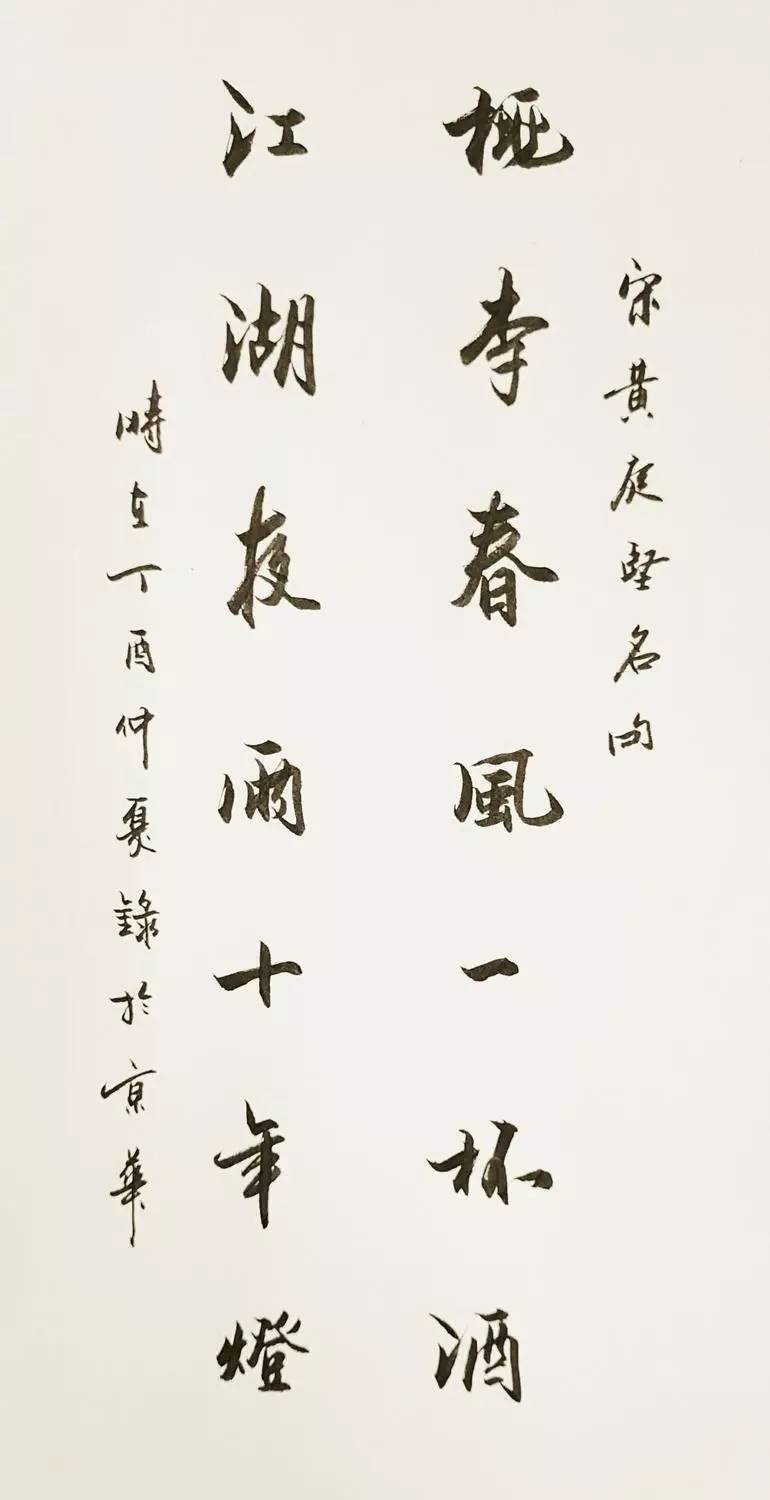 宋黃庭堅名句
桃李春風一杯酒
江湖夜雨十年燈
時在丁酉仲夏錄於京華